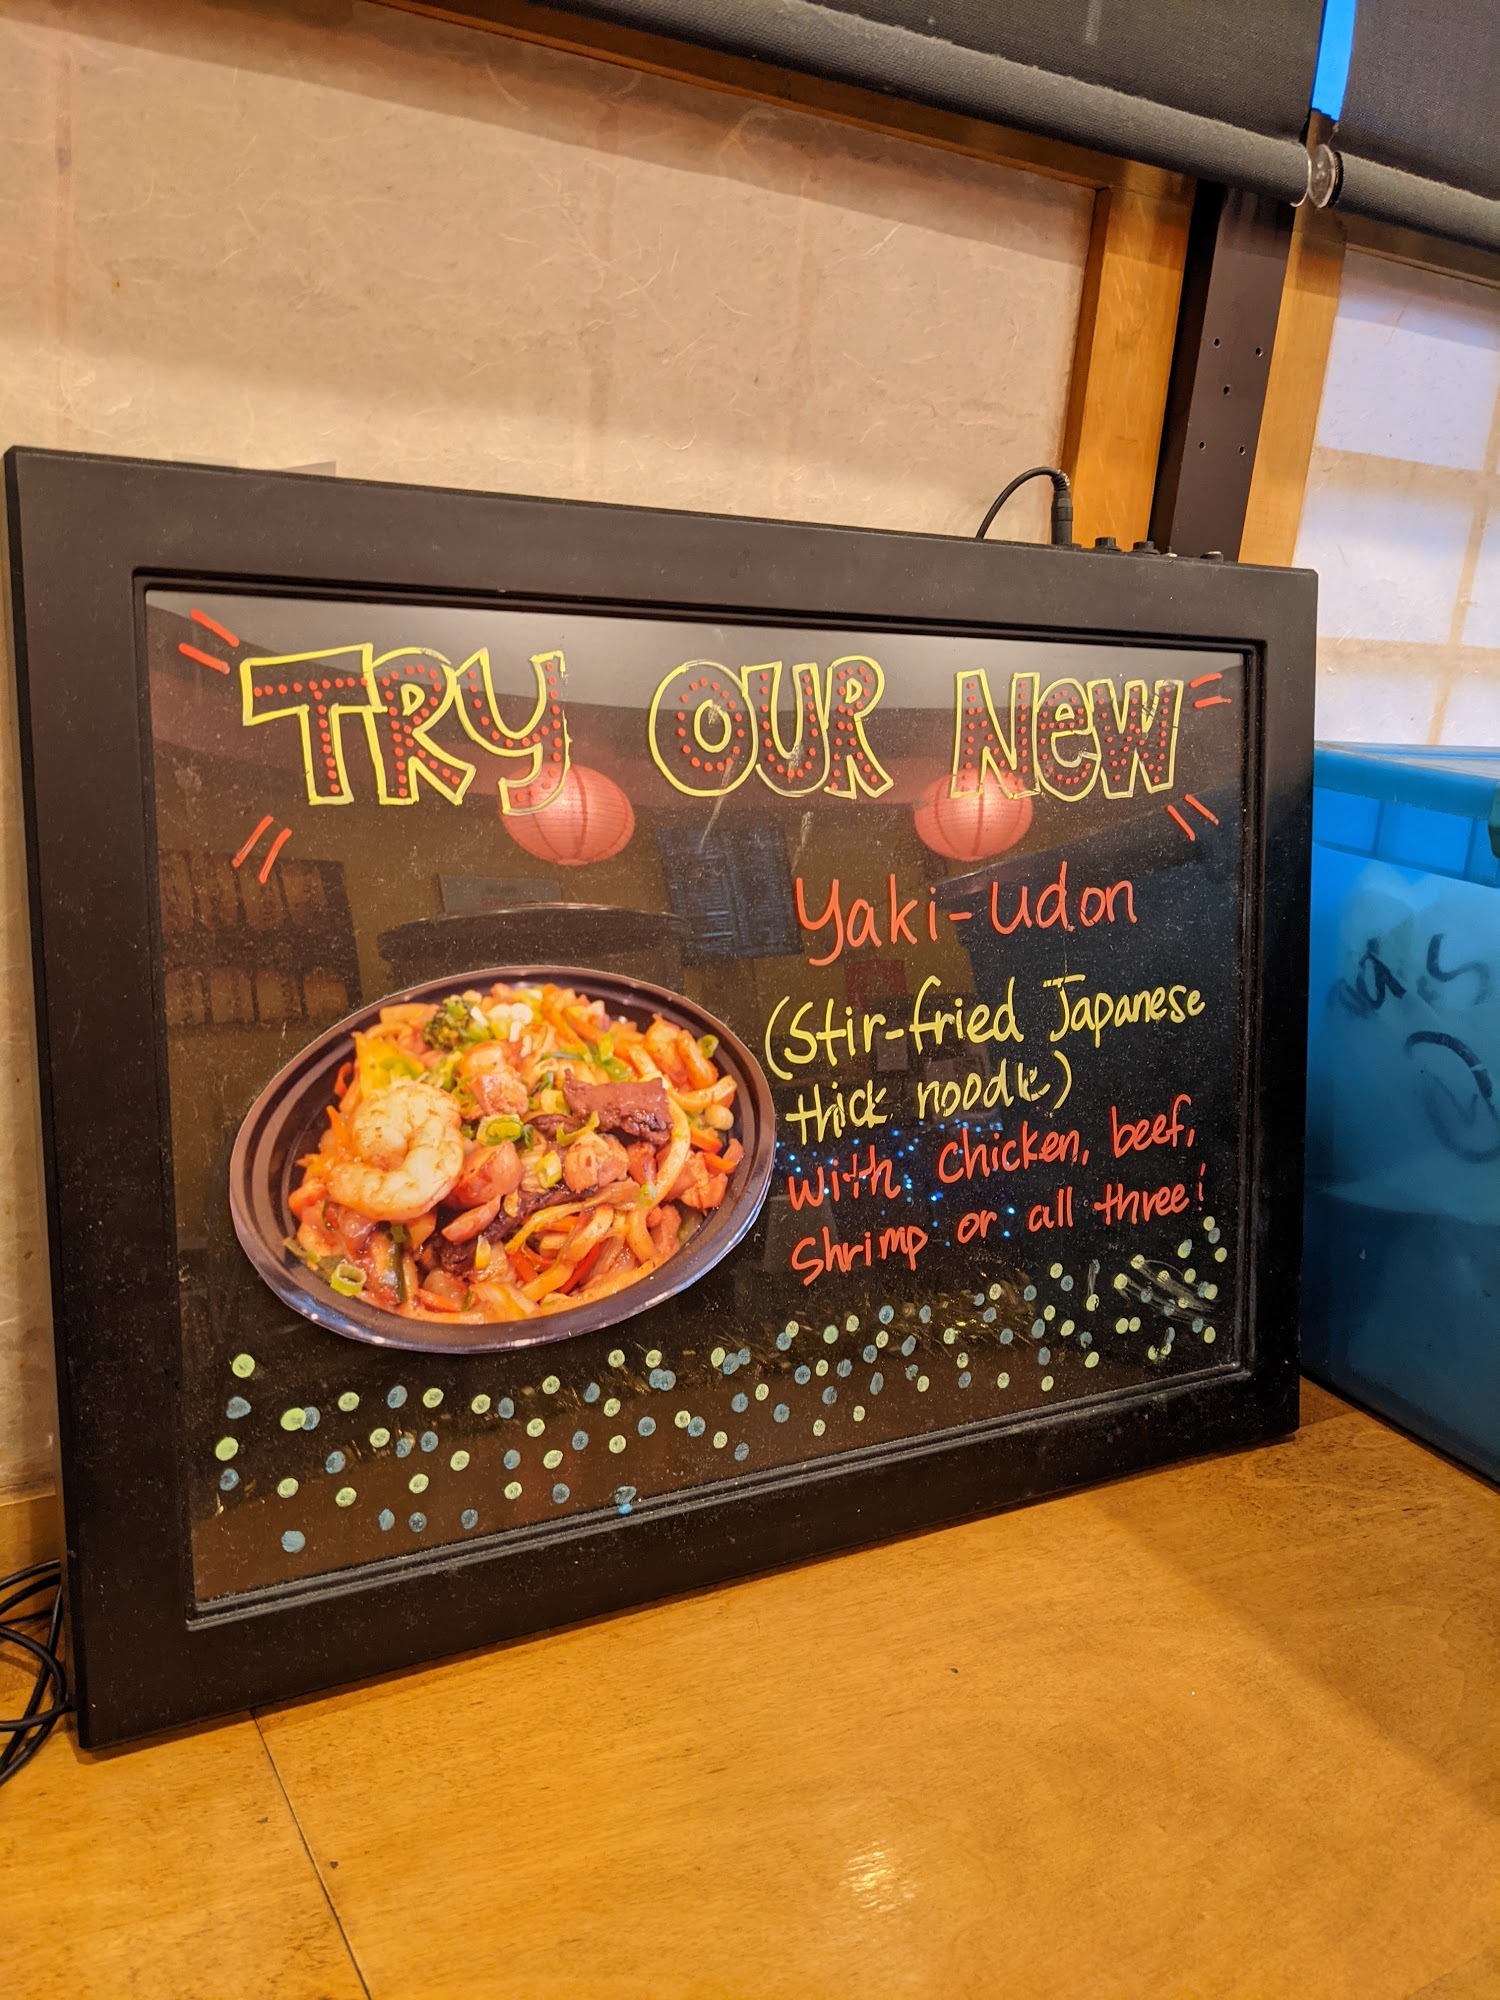 TRY OUR NEW
Yaki-Udon
(Stir-fried Japanese
thick noodle)
with chicken, beef,
Shrimp or all three!